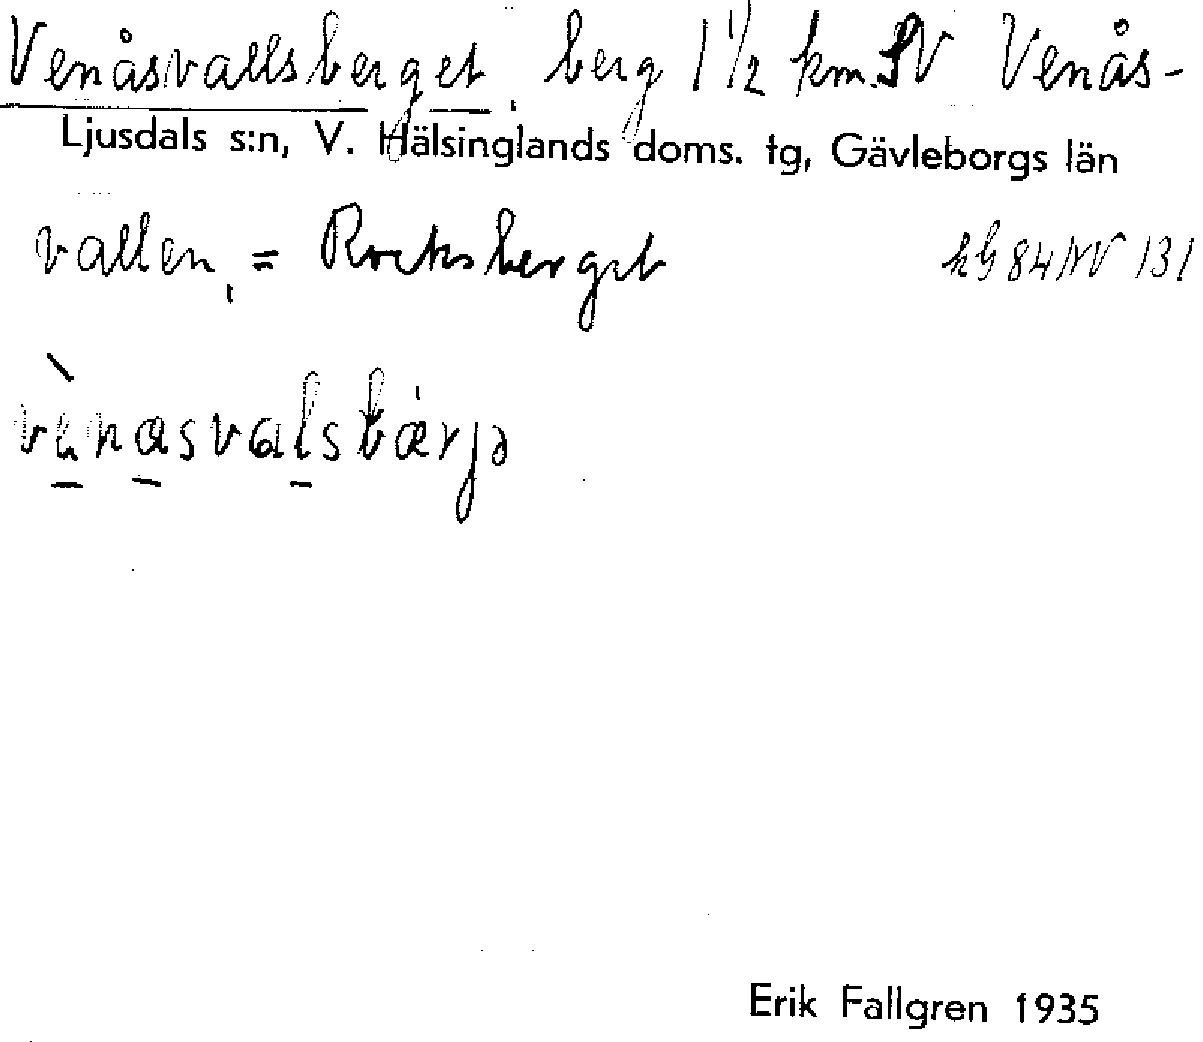 Venåsvallsberget, berg 1 1/2 km. SV Venås-
Ljusdals s:n, V. Hälsinglands doms. tg, Gävleborgs län
vallen, = Rocksberget
84 NV 131
vènasvalsbärjə
Erik Fallgren 1935